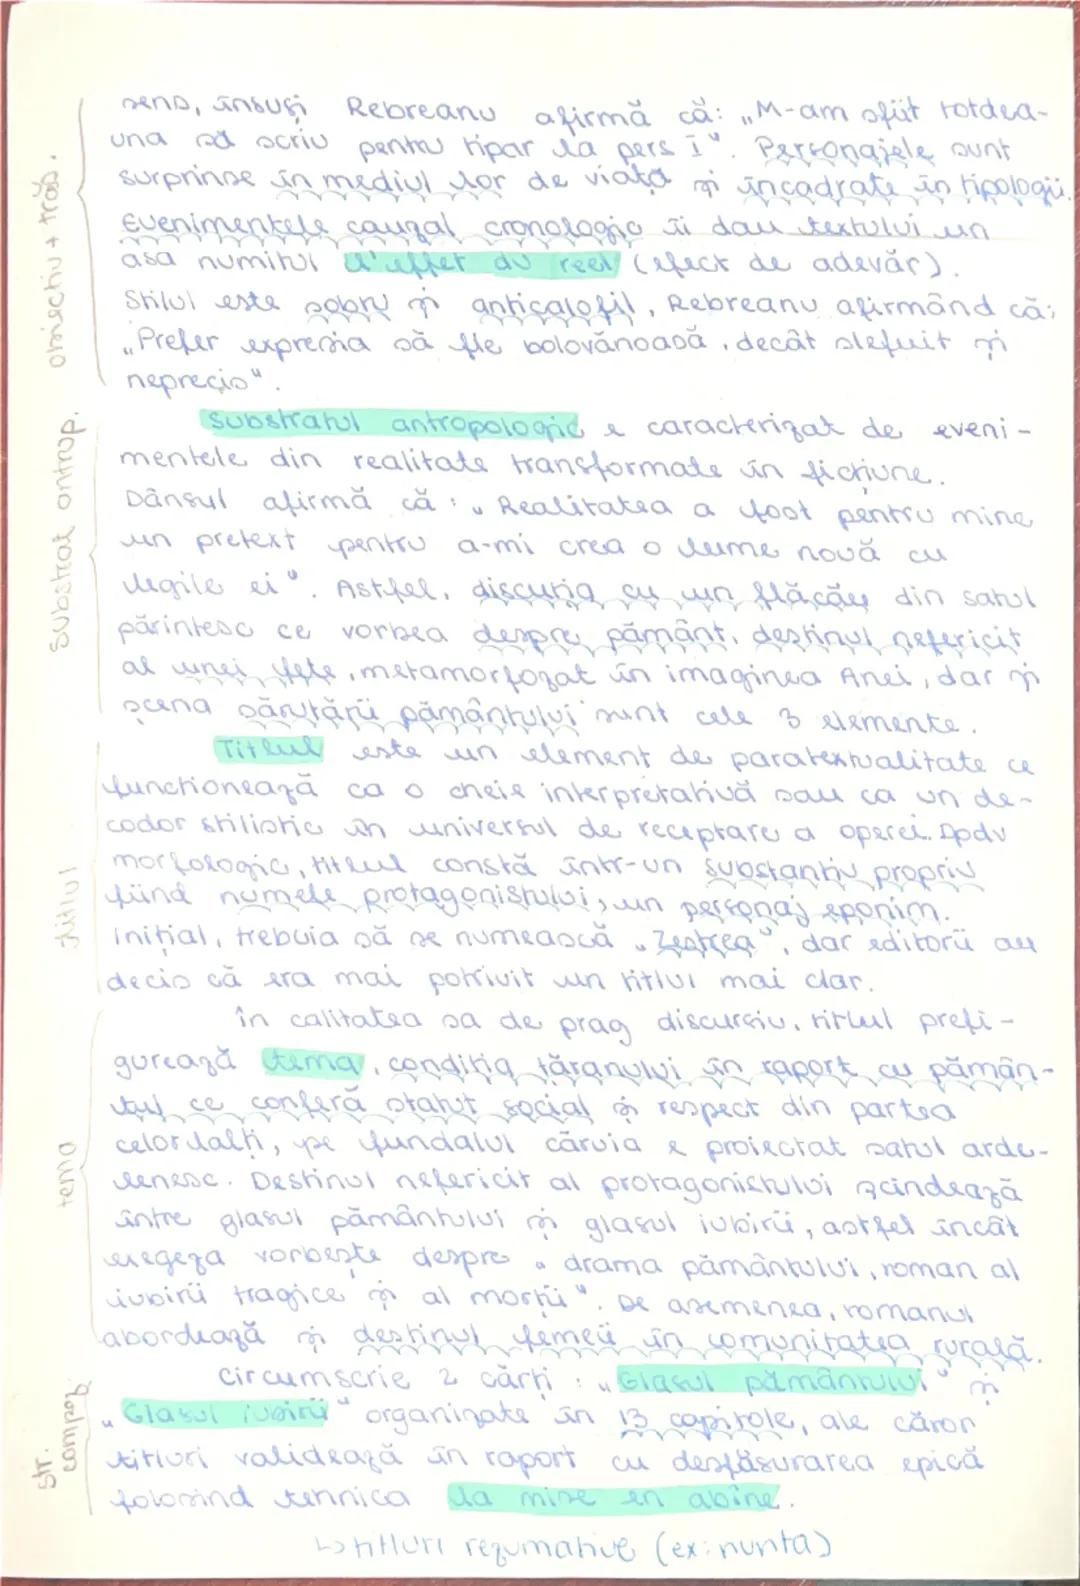 sens, însuși Rebreanu afirmă că: „M-am sfiit totdea-
una să scriu pentru tipar la pers I". Personajele sunt
surprinse în mediul lor de viață și încadrate în tipologii.
Evenimentele cauzal cronologic îi dau textului un
asa numitul l'effet du reel (efect de adevăr).
Stilul este sobru și anticalofil, Rebreanu afirmând că:
„Prefer expresia să fie bolovănoasă, decât slefuit și
neprecis".
obiectiv + trăs.
Substratul antropologic e caracterizat de eveni-
mentele din realitate transformate în ficțiune.
Dânsul afirmă că: „Realitatea a fost pentru mine
un pretext pentru a-mi crea o lume nouă cu
legile ei". Astfel, discuția cu un flăcău din satul
părintesc ce vorbea despre pământ, destinul nefericit
al unei fete, metamorfozat în imaginea Anei, dar și
scena sărutării pământului sunt cele 3 elemente.
Substrat antrop.
Titlul este un element de paratextualitate ce
funcționează ca o cheie interpretativă sau ca un de-
codor stilistic în universul de receptare a operei. Dpdv
morfologic, titlul constă într-un substantiv propriu
fiind numele protagonistului, un personaj eponim.
Inițial, trebuia să se numească „Zestrea", dar editorii au
decis că era mai potrivit un titlul mai clar.
titlul
În calitatea sa de prag discursiv, titlul prefi-
gurează tema, condiția țăranului în raport cu pămân-
tul ce conferă statut social și respect din partea
celorlalți, pe fundalul căruia e proiectat satul arde-
lenesc. Destinul nefericit al protagonistului scindează
între glasul pământului și glasul iubirii, astfel încât
exegeza vorbește despre „drama pământului, roman al
iubirii tragice și al morții". De asemenea, romanul
abordează și destinul femeii în comunitatea rurală.
tema
Circumscrie 2 cărți: „Glasul pământului" și
„Glasul iubirii" organizate în 13 capitole, ale căror
titluri validează în raport cu desfăsurarea epică
folosind tehnica la mise en abîne.
↳ titluri rezumative (ex: nunta)
str.
compoz.